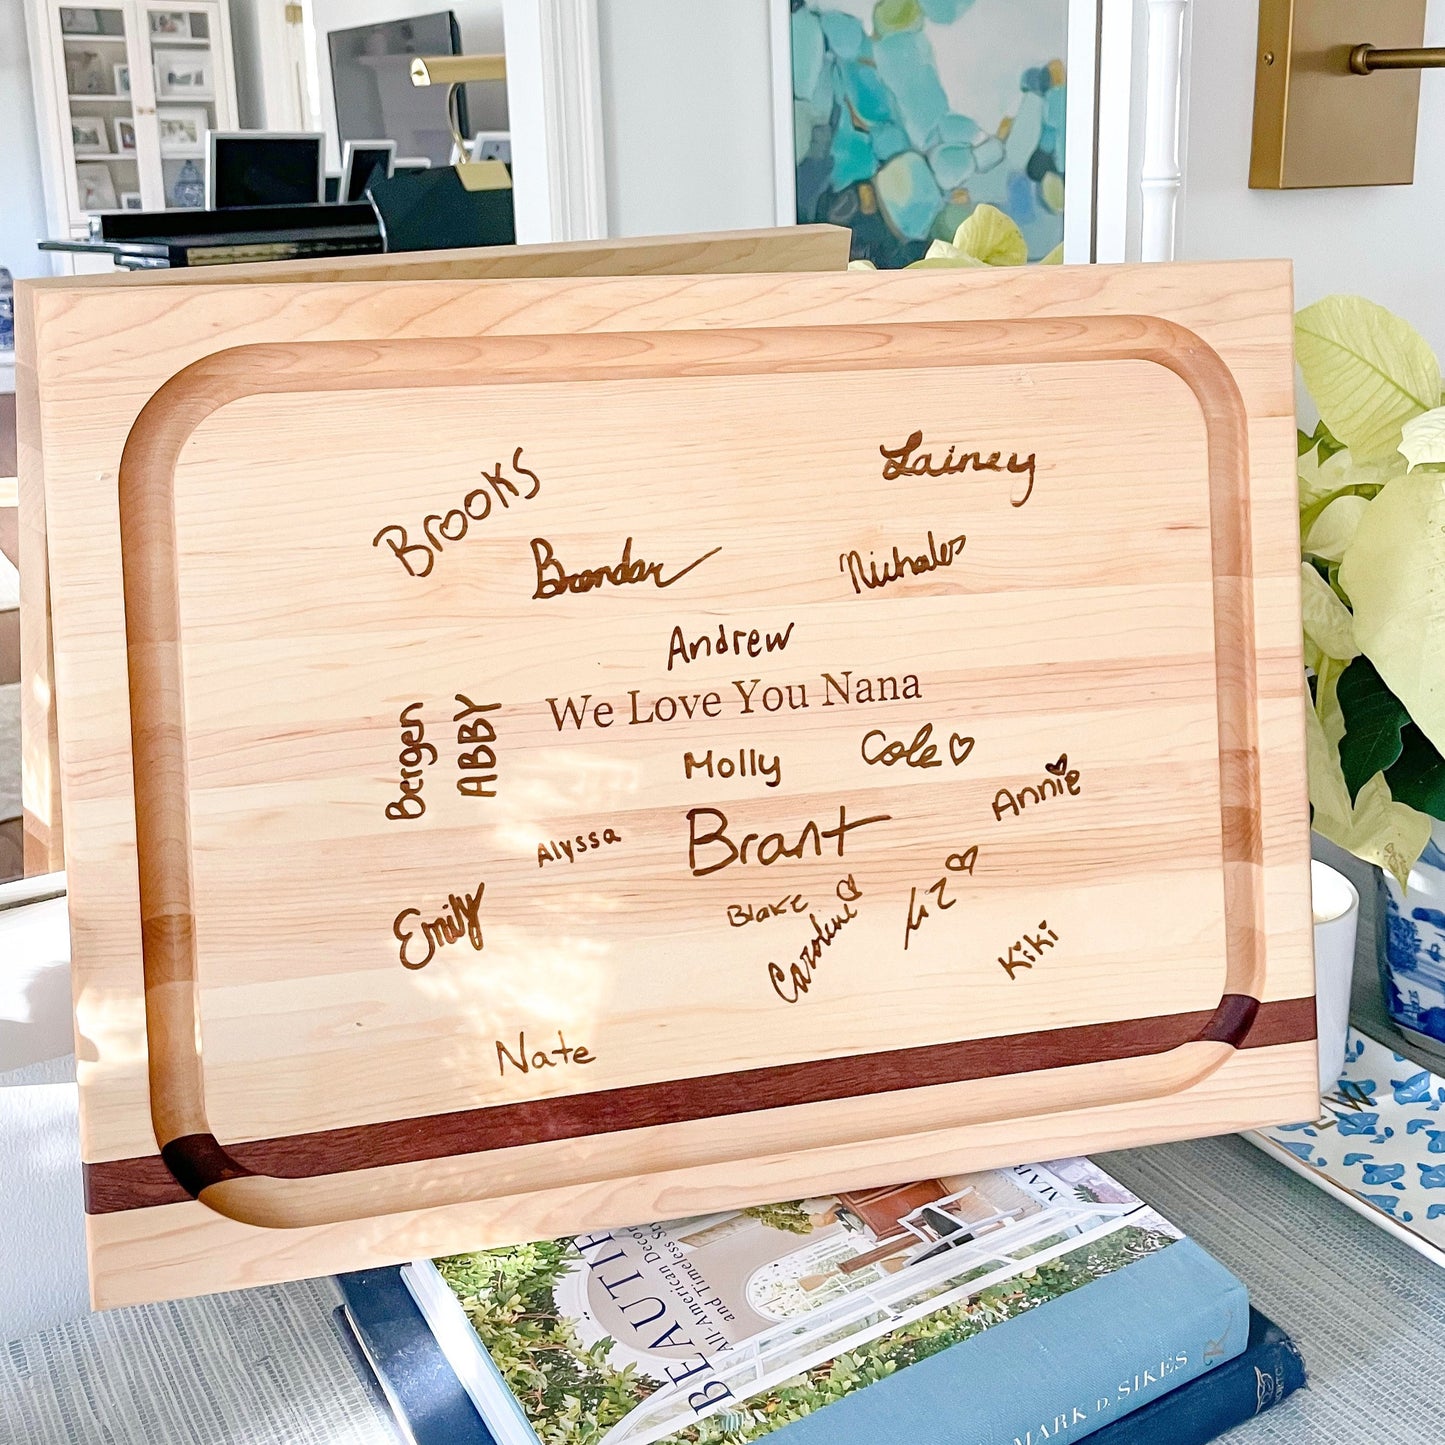 Brooks
Lainey
Brendan
Nicholas
Andrew
We Love You Nana
Bergen
ABBY
Molly
Cole
Annie
Brant
Alyssa
Emily
Blake
Caroline
Liz
Kiki
Nate
BEAUTIF
All-American Decora
and Timeless Sty
MAR
MARK D. SIKES
R